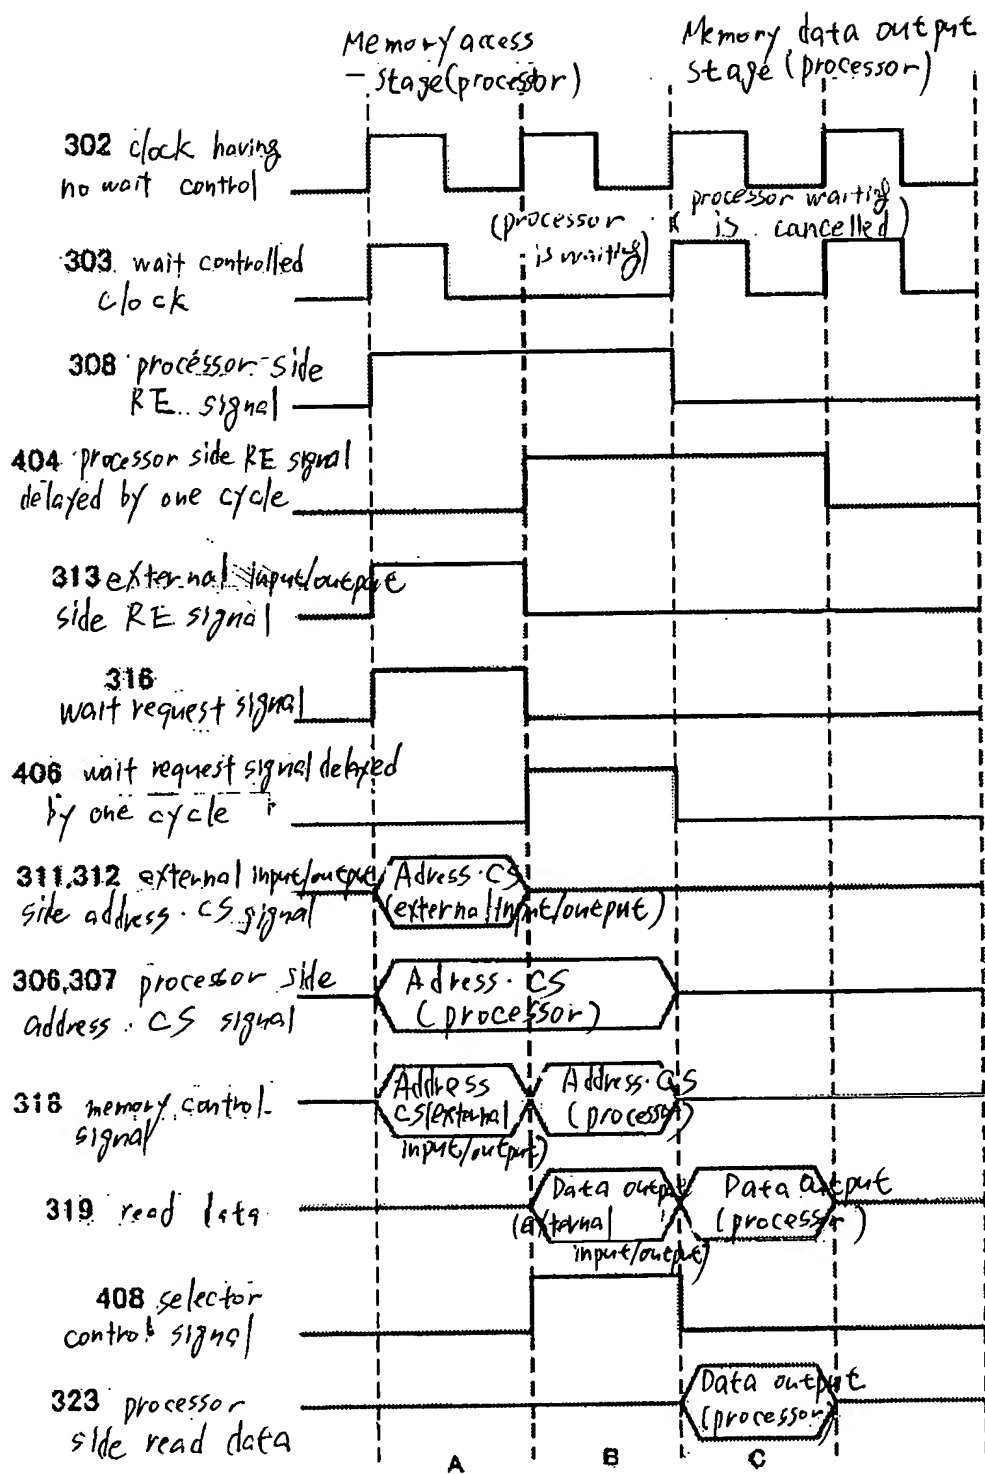 Memory access
stage (processor)
Memory data output
stage (processor)
302 clock having
no wait control
(processor
is waiting)
(processor waiting
is cancelled)
303 wait controlled
clock
308 processor-side
RE signal
404 processor side RE signal
delayed by one cycle
313 external input/output
side RE signal
316
wait request signal
406 wait request signal delayed
by one cycle
311,312 external input/output
side address · CS signal
Adress · CS
(external input/output)
306,307 processor side
address · CS signal
Adress · CS
(processor)
318 memory control
signal
Address
CS(external
input/output)
Address · CS
(processor)
319 read data
Data output
(external
input/output)
Data output
(processor)
408 selector
control signal
323 processor
side read data
Data output
(processor)
A B C